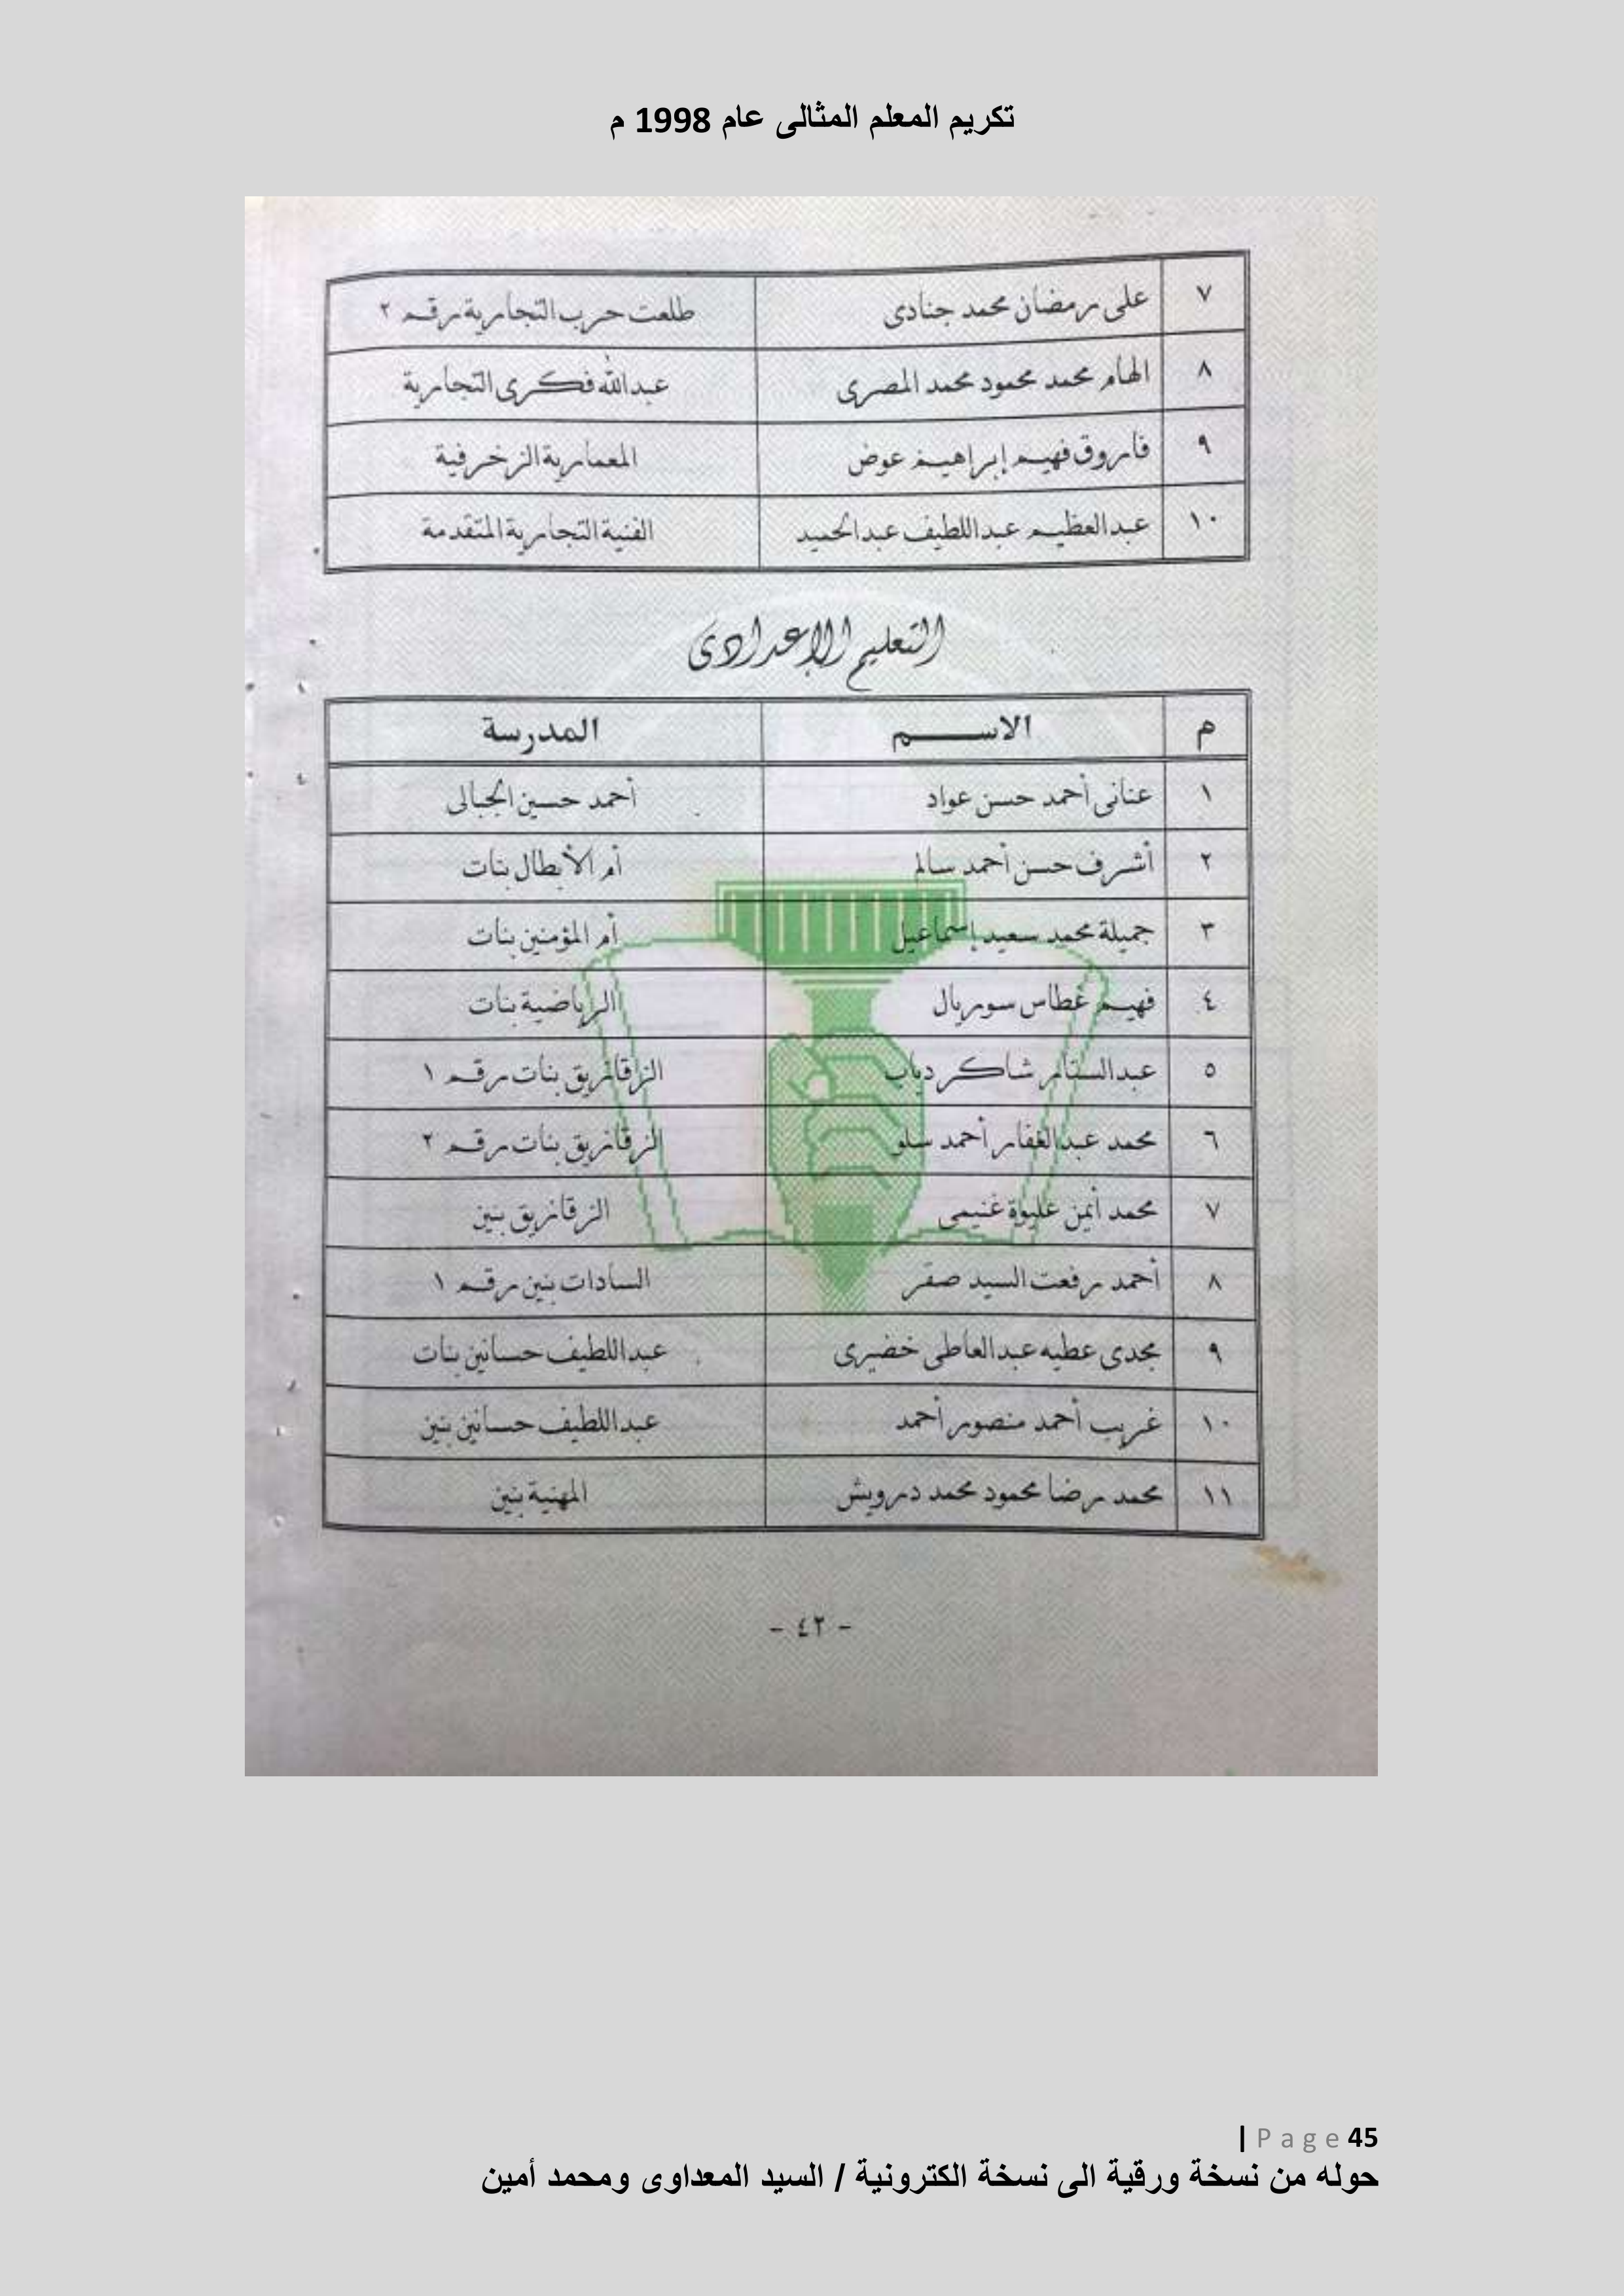 تكريم المعلم المثالى عام 1998 م
٧ على رمضان محمد جنادى طلعت حرب التجارية رقم ٢
٨ الهام محمد محمود محمد المصرى عبدالله فكرى التجارية
٩ فاروق فهيم إبراهيم عوض المعمارية الزخرفية
١٠ عبدالعظيم عبداللطيف عبدالحميد الفنية التجارية المتقدمة
التعليم الإعدادى
م الاسم المدرسة
١ عنانى أحمد حسن عواد أحمد حسين الجبالى
٢ أشرف حسن أحمد سالم أم الأبطال بنات
٣ جميلة محمد سعيد إسماعيل أم المؤمنين بنات
٤ فهيم غطاس سوريال الرياضية بنات
٥ عبدالستار شاكر دياب الزقازيق بنات رقم ١
٦ محمد عبدالغفار أحمد سلو الزقازيق بنات رقم ٢
٧ محمد أيمن عليوة غنيمى الزقازيق بنين
٨ أحمد رفعت السيد صقر السادات بنين رقم ١
٩ مجدى عطيه عبدالعاطى خضيرى عبداللطيف حسانين بنات
١٠ غريب أحمد منصور أحمد عبداللطيف حسانين بنين
١١ محمد رضا محمود محمد درويش المهنية بنين
- ٤٢ -
45 Page |
حوله من نسخة ورقية الى نسخة الكترونية / السيد المعداوى ومحمد أمين